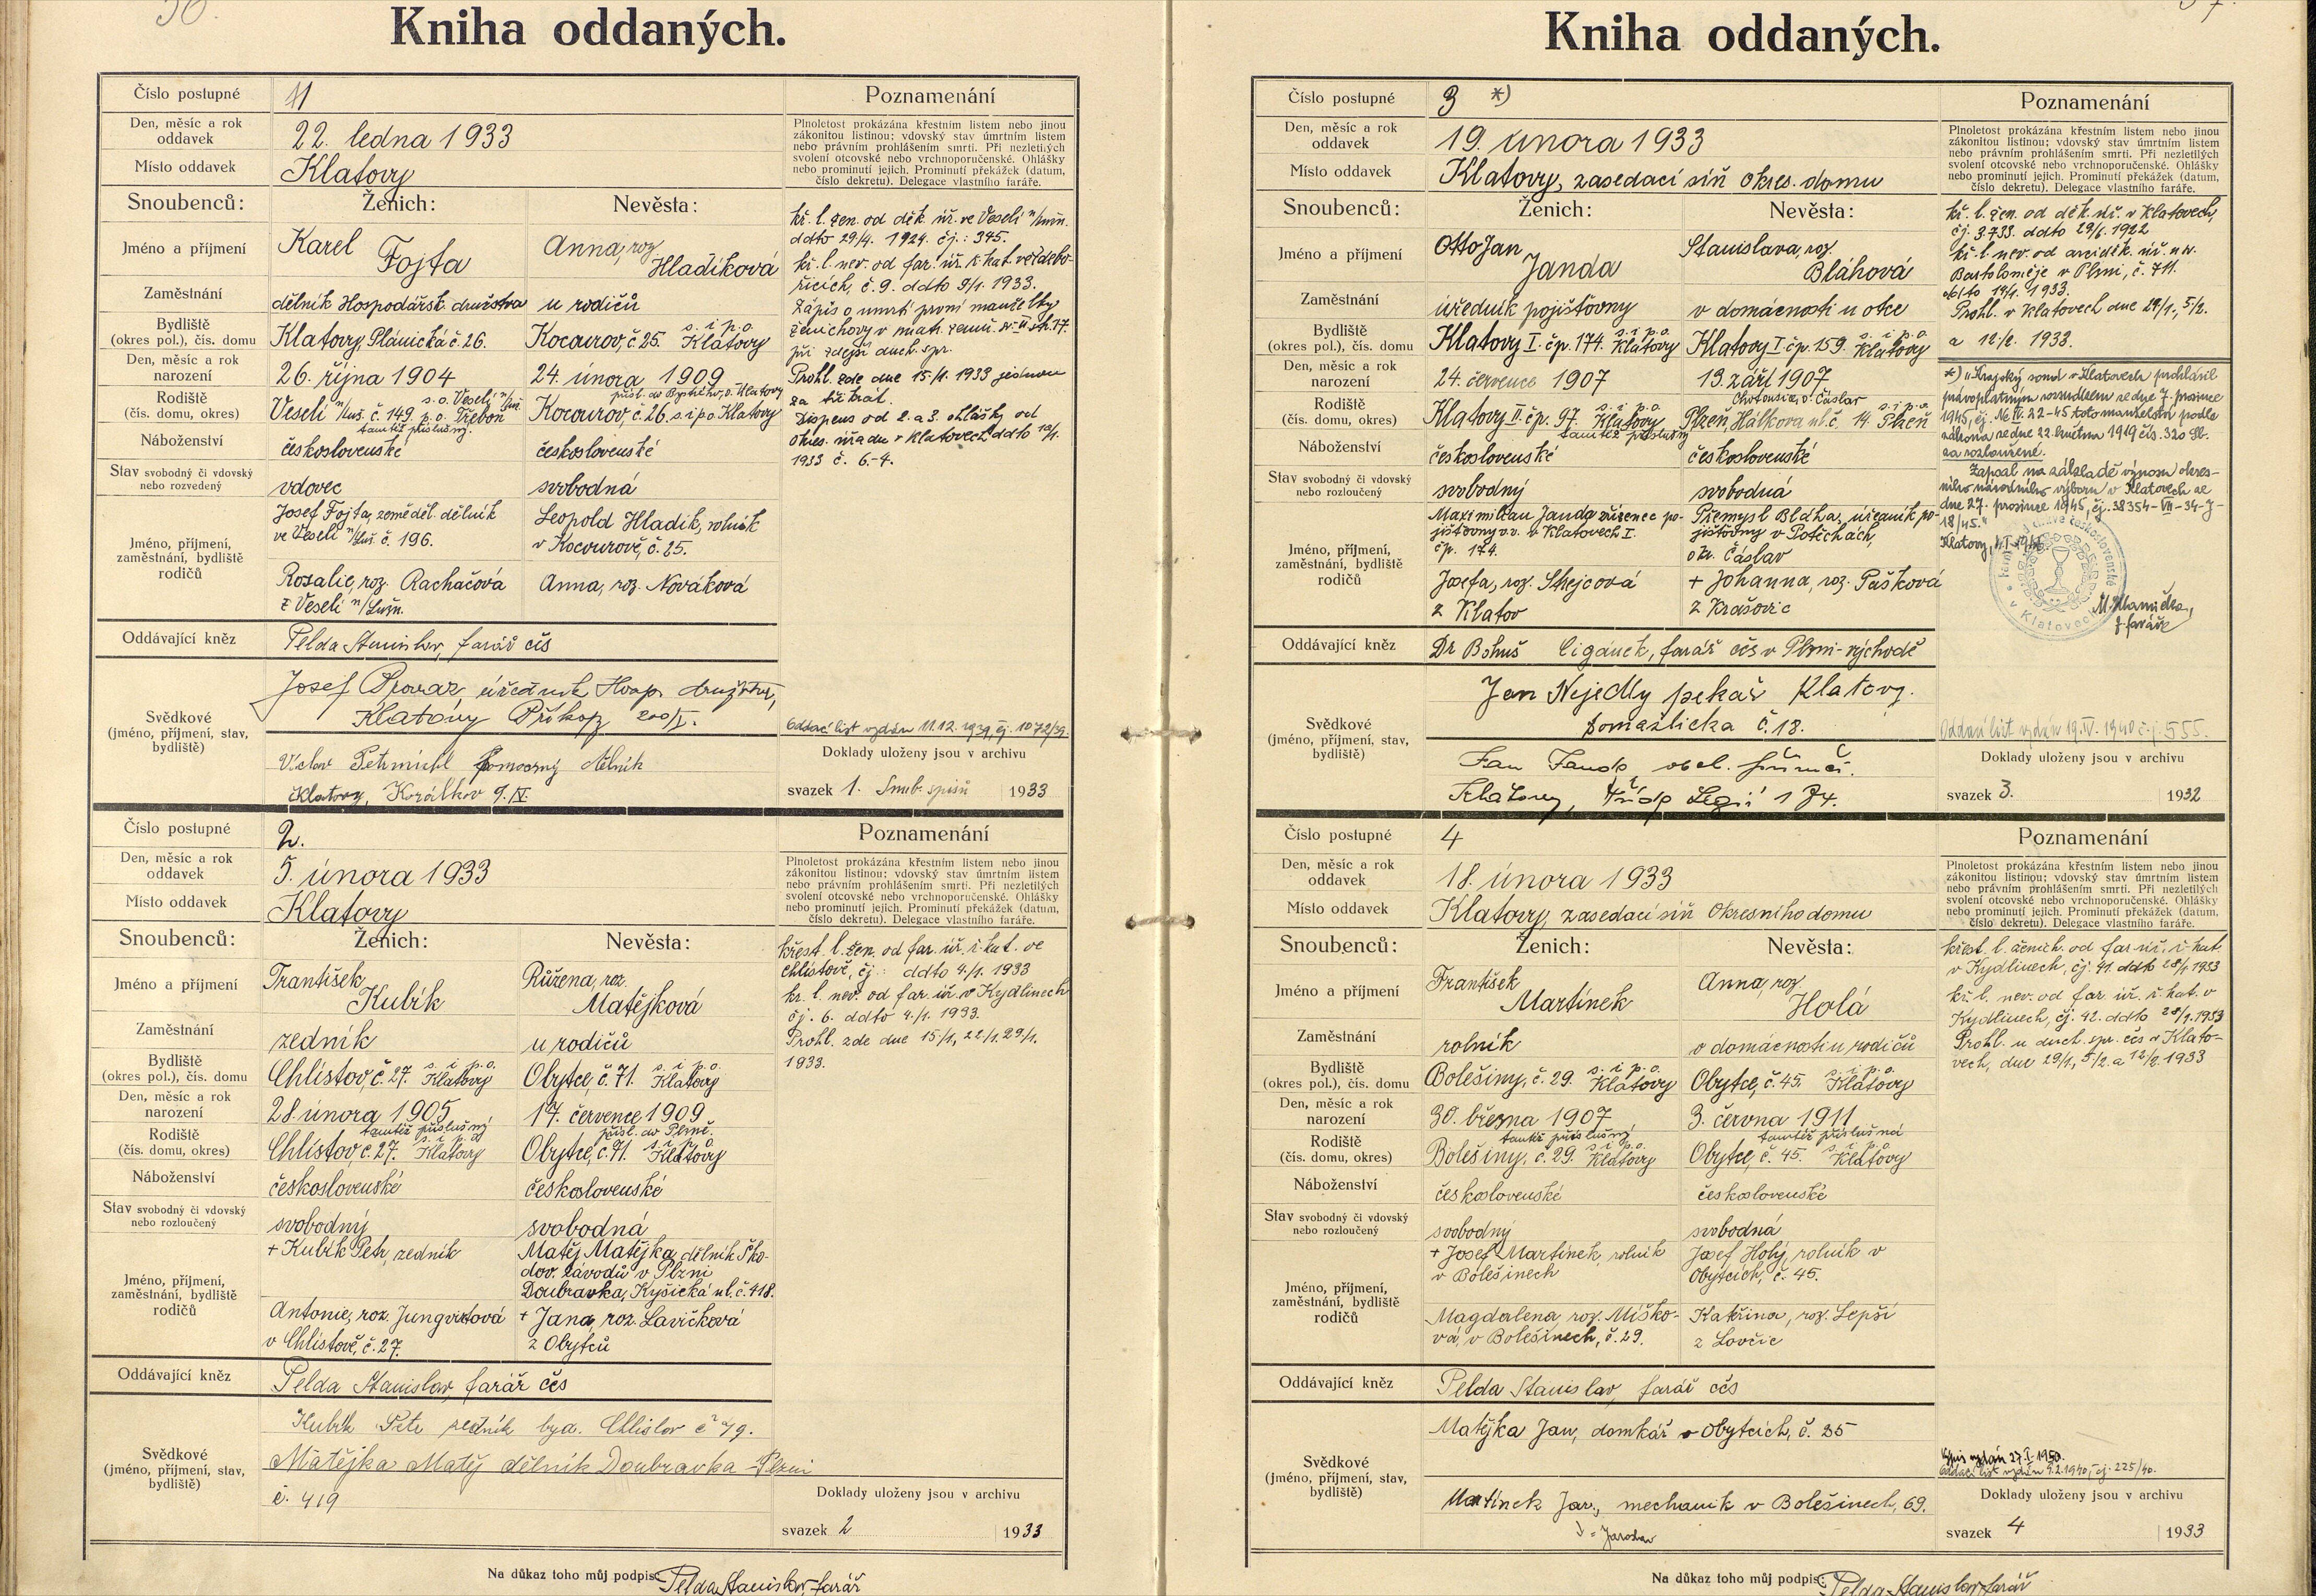 Kniha oddaných.
Číslo postupné
Poznamenání
Den, měsíc a rok oddavek 22. ledna 1933
Místo oddavek Klatovy
Plnoletost prokázána křestním listem nebo jinou
zákonitou listinou; vdovský stav úmrtním listem
nebo právním prohlášením smrti. Při nezletilých
svolení otcovské nebo vrchnoporučenské. Ohlášky
nebo prominutí jejich. Prominutí překážek (datum,
číslo dekretu). Delegace vlastního faráře.
Snoubenců: Ženich: Nevěsta:
Jméno a příjmení Karel Fojta Anna, roz. Hladíková
Zaměstnání dělník Hospodářsk. družstva u rodičů
Bydliště (okres pol.), čís. domu Klatovy, Plánická č. 26. Kocourov, č. 25. s. i p. o. Klatovy
Den, měsíc a rok narození 26. října 1904 24. února 1909
Rodiště (čís. domu, okres) Veselí n/Luž. č. 149 p. o. Třeboň Kocourov, č. 26. s. i p. o. Klatovy
Náboženství československé československé
Stav svobodný či vdovský nebo rozvedený vdovec svobodná
Jméno, příjmení, zaměstnání, bydliště rodičů
Josef Fojta, zeměděl. dělník
ve Veselí n/Luž. č. 196.
Leopold Hladík, rolník
v Kocourově, č. 25.
Rosalie, roz. Rachačová
z Veselí n/Lužn.
Anna, roz. Nováková
kř. l. žen. od děk. úř. ve Veselí n/Lužn.
ddto 29/4. 1924. čj.: 345.
kř. l. nev. od far. úř. ř. kat. ve
č. 9. ddto 9/1. 1933.
Zápis o úmrtí první manželky
při zdejší duch. spr.
Prohl. zde dne 15./1. 1933 jednou
za třikrát.
Dispens od 2. a 3. ohlášky od
okres. úřadu v Klatovech ddto
1933 č. 6.-4.
Oddávající kněz Pelda Stanislav, farář čs
Svědkové (jméno, příjmení, stav, bydliště)
Josef Provaz, úředník Hosp. družstva,
Klatovy Příkopy 200/I.
pomocný dělník
Klatovy,
Oddací list vydán 11.12. 1939, čj. 1072/39.
Doklady uloženy jsou v archivu
svazek 1. Snub. spisů 1933
Číslo postupné 2.
Poznamenání
Den, měsíc a rok oddavek 5. února 1933
Místo oddavek Klatovy
Plnoletost prokázána křestním listem nebo jinou
zákonitou listinou; vdovský stav úmrtním listem
nebo právním prohlášením smrti. Při nezletilých
svolení otcovské nebo vrchnoporučenské. Ohlášky
nebo prominutí jejich. Prominutí překážek (datum,
číslo dekretu). Delegace vlastního faráře.
Snoubenců: Ženich: Nevěsta:
Jméno a příjmení František Kubík Růžena, roz. Matějková
Zaměstnání zedník u rodičů
Bydliště (okres pol.), čís. domu Chlistov, č. 27. s. i p. o. Klatovy Obytce, č. 71. s. i p. o. Klatovy
Den, měsíc a rok narození 28. února 1905 17. července 1909
tamtéž příslušný přísl. do Plzně.
Rodiště (čís. domu, okres) Chlistov, č. 27. s. i p. o. Klatovy Obytce, č. 71. s. i p. o. Klatovy
Náboženství československé československé
Stav svobodný či vdovský nebo rozloučený svobodný svobodná
Jméno, příjmení, zaměstnání, bydliště rodičů
+ Kubík Petr, zedník
Matěj Matějka, dělník Ško-
dov. závodů v Plzni
Doubravka, Kyšická ul. č. 418.
Antonie, roz. Jungvirtová
v Chlistově, č. 27.
+ Jana, roz. Lavičková
z Obytců
křest. l. žen. od far. úř. ř. kat. ve
Chlistově, čj.: ddto 4./1. 1933
kř. l. nev. od far. úř. v Kydlinech
čj. 6. ddto 4./1. 1933.
Prohl. zde dne 15/1., 22/1. 29/1.
1933.
Oddávající kněz Pelda Stanislav, farář čs
Svědkové (jméno, příjmení, stav, bydliště)
Kubík Petr zedník byd. Chlistov
Matějka Matěj dělník Doubravka - Plzni
č. 419
Doklady uloženy jsou v archivu
svazek 2 1933
Na důkaz toho můj podpis: Pelda Stanislav, farář
Kniha oddaných.
Číslo postupné 3 *)
Poznamenání
Den, měsíc a rok oddavek 19. února 1933
Místo oddavek Klatovy, zasedací síň okres. domu
Plnoletost prokázána křestním listem nebo jinou
zákonitou listinou; vdovský stav úmrtním listem
nebo právním prohlášením smrti. Při nezletilých
svolení otcovské nebo vrchnoporučenské. Ohlášky
nebo prominutí jejich. Prominutí překážek (datum,
číslo dekretu). Delegace vlastního faráře.
Snoubenců: Ženich: Nevěsta:
Jméno a příjmení Otto Jan Janda Stanislava, roz. Bláhová
Zaměstnání úředník pojišťovny v domácnosti u otce
Bydliště (okres pol.), čís. domu Klatovy I. čp. 174. s. i p. o. Klatovy Klatovy I čp. 159. s. i p. o. Klatovy
Den, měsíc a rok narození 24. července 1907 13. září 1907
Rodiště (čís. domu, okres) Klatovy II. čp. 97. s. i p. o. Klatovy Plzeň, Hálkova ul. č. 14. s. i p. o. Plzeň
tamtéž příslušný
Náboženství československé československé
Stav svobodný či vdovský nebo rozloučený svobodný svobodná
Jméno, příjmení, zaměstnání, bydliště rodičů
Maxmilian Janda zřízenec po-
jišťovny v.v. v Klatovech I.
čp. 174.
Přemysl Bláha, úředník po-
jišťovny v Potěchách,
okr. Čáslav
Josefa, roz. Stejcová
z Klatov
+ Johanna, roz. Pašková
z Krašovic
kř. l. žen. od děk. úř. v Klatovech,
čj. 3.733. ddto 29/6. 1922
kř. l. nev. od arciděk. úř. u sv.
Bartoloměje v Plzni, č. 711.
ddto 19/1. 1933.
Prohl. v Klatovech dne 29/1., 5/2.
a 12/2. 1933.
*) „Krajský soud v Klatovech prohlásil
pravoplatným rozsudkem ze dne 7. prosince
1945, čj. toto manželství podle
zákona ze dne 22. května 1919 čís. 320 Sb.
za rozloučené.
Zapsal na základě výnosu okres-
ního národního výboru v Klatovech ze
dne 27. prosince 1945, čj. 38354-VII-34-J-
18/45."
Oddávající kněz Dr Bohuš Cigánek, farář čs v Plzni-východě
Svědkové (jméno, příjmení, stav, bydliště)
Jan Nejedlý pekař Klatovy.
Domažlická č. 18.
Jan Janda
Klatovy, třída Legií 174.
Oddací list vydán 19. IV. 1940 č.j. 555.
Doklady uloženy jsou v archivu
svazek 3. 1932
Číslo postupné 4
Poznamenání
Den, měsíc a rok oddavek 18. února 1933
Místo oddavek Klatovy, zasedací síň Okresního domu
Plnoletost prokázána křestním listem nebo jinou
zákonitou listinou; vdovský stav úmrtním listem
nebo právním prohlášením smrti. Při nezletilých
svolení otcovské nebo vrchnoporučenské. Ohlášky
nebo prominutí jejich. Prominutí překážek (datum,
číslo dekretu). Delegace vlastního faráře.
Snoubenců: Ženich: Nevěsta:
Jméno a příjmení František Martínek Anna, roz. Holá
Zaměstnání rolník v domácnosti u rodičů
Bydliště (okres pol.), čís. domu Bolešiny, č. 29. s. i p. o. Klatovy Obytce, č. 45. s. i p. o. Klatovy
Den, měsíc a rok narození 30. března 1907 3. června 1911
tamtéž příslušný tamtéž příslušná
Rodiště (čís. domu, okres) Bolešiny, č. 29. s. i p. o. Klatovy Obytce, č. 45. s. i p. o. Klatovy
Náboženství československé československé
Stav svobodný či vdovský nebo rozloučený svobodný svobodná
Jméno, příjmení, zaměstnání, bydliště rodičů
+ Josef Martínek, rolník
v Bolešinech
Josef Holý, rolník v
Obytcích, č. 45.
Magdalena, roz. Míško-
vá, v Bolešinech, č. 29.
Kateřina, roz. Lepší
z Lovčic
křest. l. ženich. od far. úř. ř. kat.
v Kydlinech, čj. 41. ddto 28/1 1933
kř. l. nev. od far. úř. ř. kat. v
Kydlinech, čj. 42. ddto 28/1. 1933
Prohl. u duch. spr. čs v Klato-
vech, dne 29/1., 5/2. a 12/2. 1933
Oddávající kněz Pelda Stanislav, farář čs
Svědkové (jméno, příjmení, stav, bydliště)
Matějka Jan, domkář v Obytcích, č. 35
Martínek Jar., mechanik v Bolešinech, 69.
= Jaroslav
Výpis vydán 27. I. 1950.
Oddací list vydán 9.2.1940, čj. 225/40.
Doklady uloženy jsou v archivu
svazek 4 1933
Na důkaz toho můj podpis: Pelda Stanislav, farář